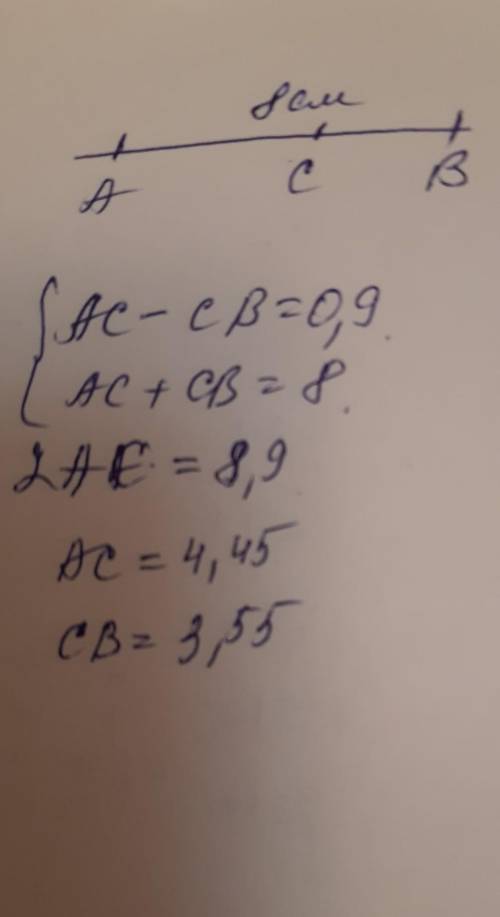 8 см
A C B
AC - CB = 0,9
AC + CB = 8.
2AC = 8,9
AC = 4,45
CB = 3,55